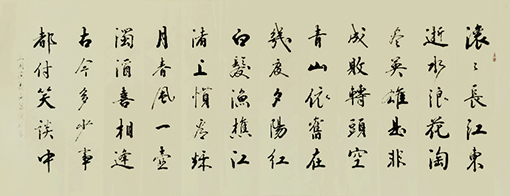 滚〻長江東
逝水浪花淘
尽英雄是非
成敗轉頭空
青山依舊在
幾度夕陽紅
白髮漁樵江
渚上慣看秋
月春風一壺
濁酒喜相逢
古今多少事
都付笑談中